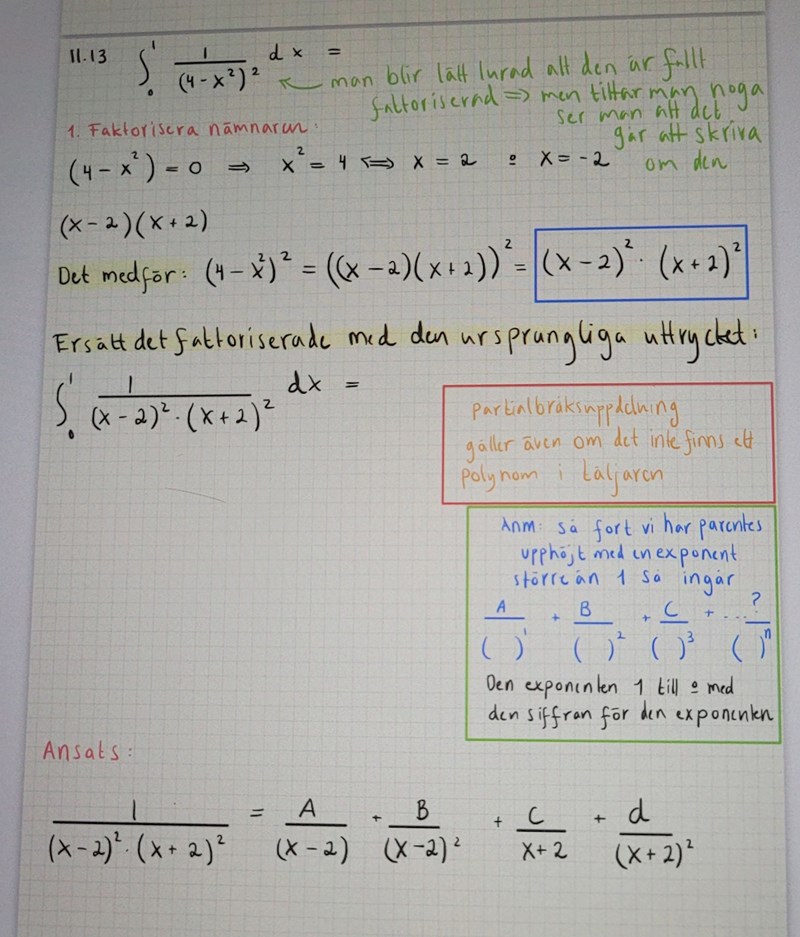 11.13 ∫₀¹ 1/(4-x²)² dx =
← man blir lätt lurad att den är fullt
faktoriserad ⇒ men tittar man noga
ser man att det
går att skriva
om den
1. Faktorisera nämnaren:
(4-x²) = 0 ⇒ x² = 4 ⇔ x = 2 o x = -2
(x-2)(x+2)
Det medför: (4-x²)² = ((x-2)(x+2))² = (x-2)² · (x+2)²
Ersätt det faktoriserade med den ursprungliga uttrycket:
∫₀¹ 1/((x-2)² · (x+2)²) dx =
partialbråksuppdelning
gäller även om det inte finns ett
polynom i täljaren
Anm: så fort vi har parentes
upphöjt med en exponent
större än 1 så ingår
A/( )¹ + B/( )² + C/( )³ + ... ?/( )ⁿ
Den exponenten 1 till o med
den siffran för den exponenten
Ansats:
1/((x-2)² · (x+2)²) = A/(x-2) + B/(x-2)² + C/x+2 + d/(x+2)²